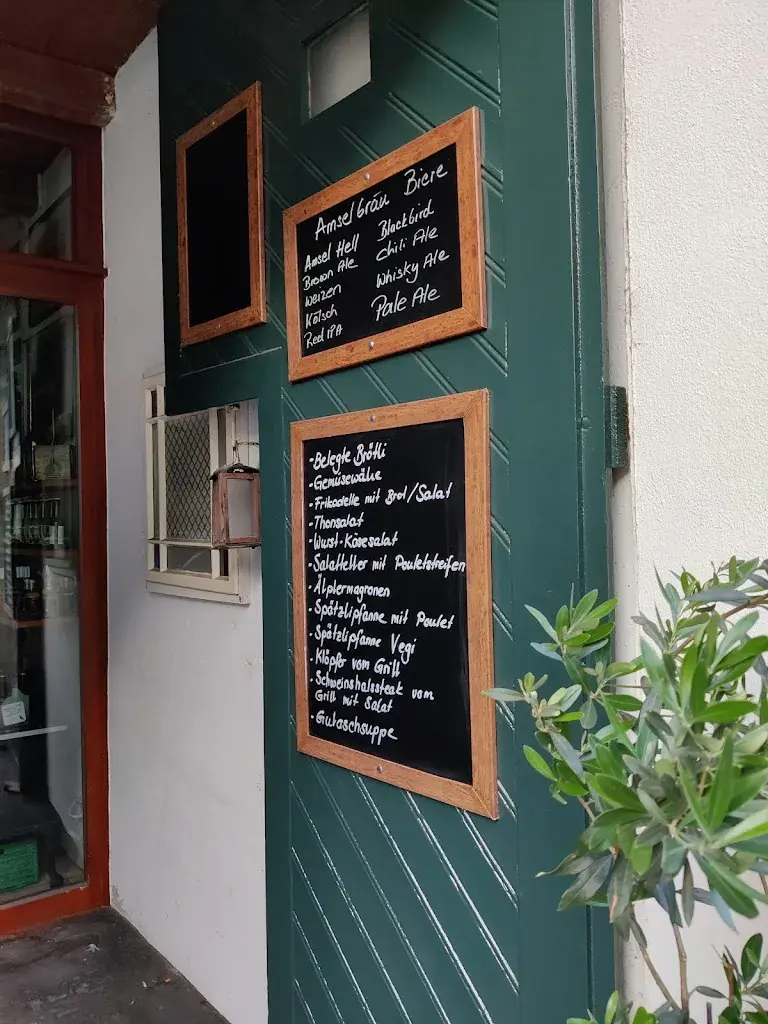 Amselbräu Biere
Amsel Hell
Brown Ale
Weizen
Kölsch
Red IPA
Blackbird
Chili Ale
Whisky Ale
Pale Ale
-Belegte Brötli
-Gemüsewähe
-Frikadelle mit Brot/Salat
-Thonsalat
-Wurst-Käsesalat
-Salatteller mit Pouletstreifen
-Älplermagronen
-Spätzlipfanne mit Poulet
-Spätzlipfanne Vegi
-Klöpfer vom Grill
-Schweinshalssteak vom
Grill mit Salat
-Gulaschsuppe